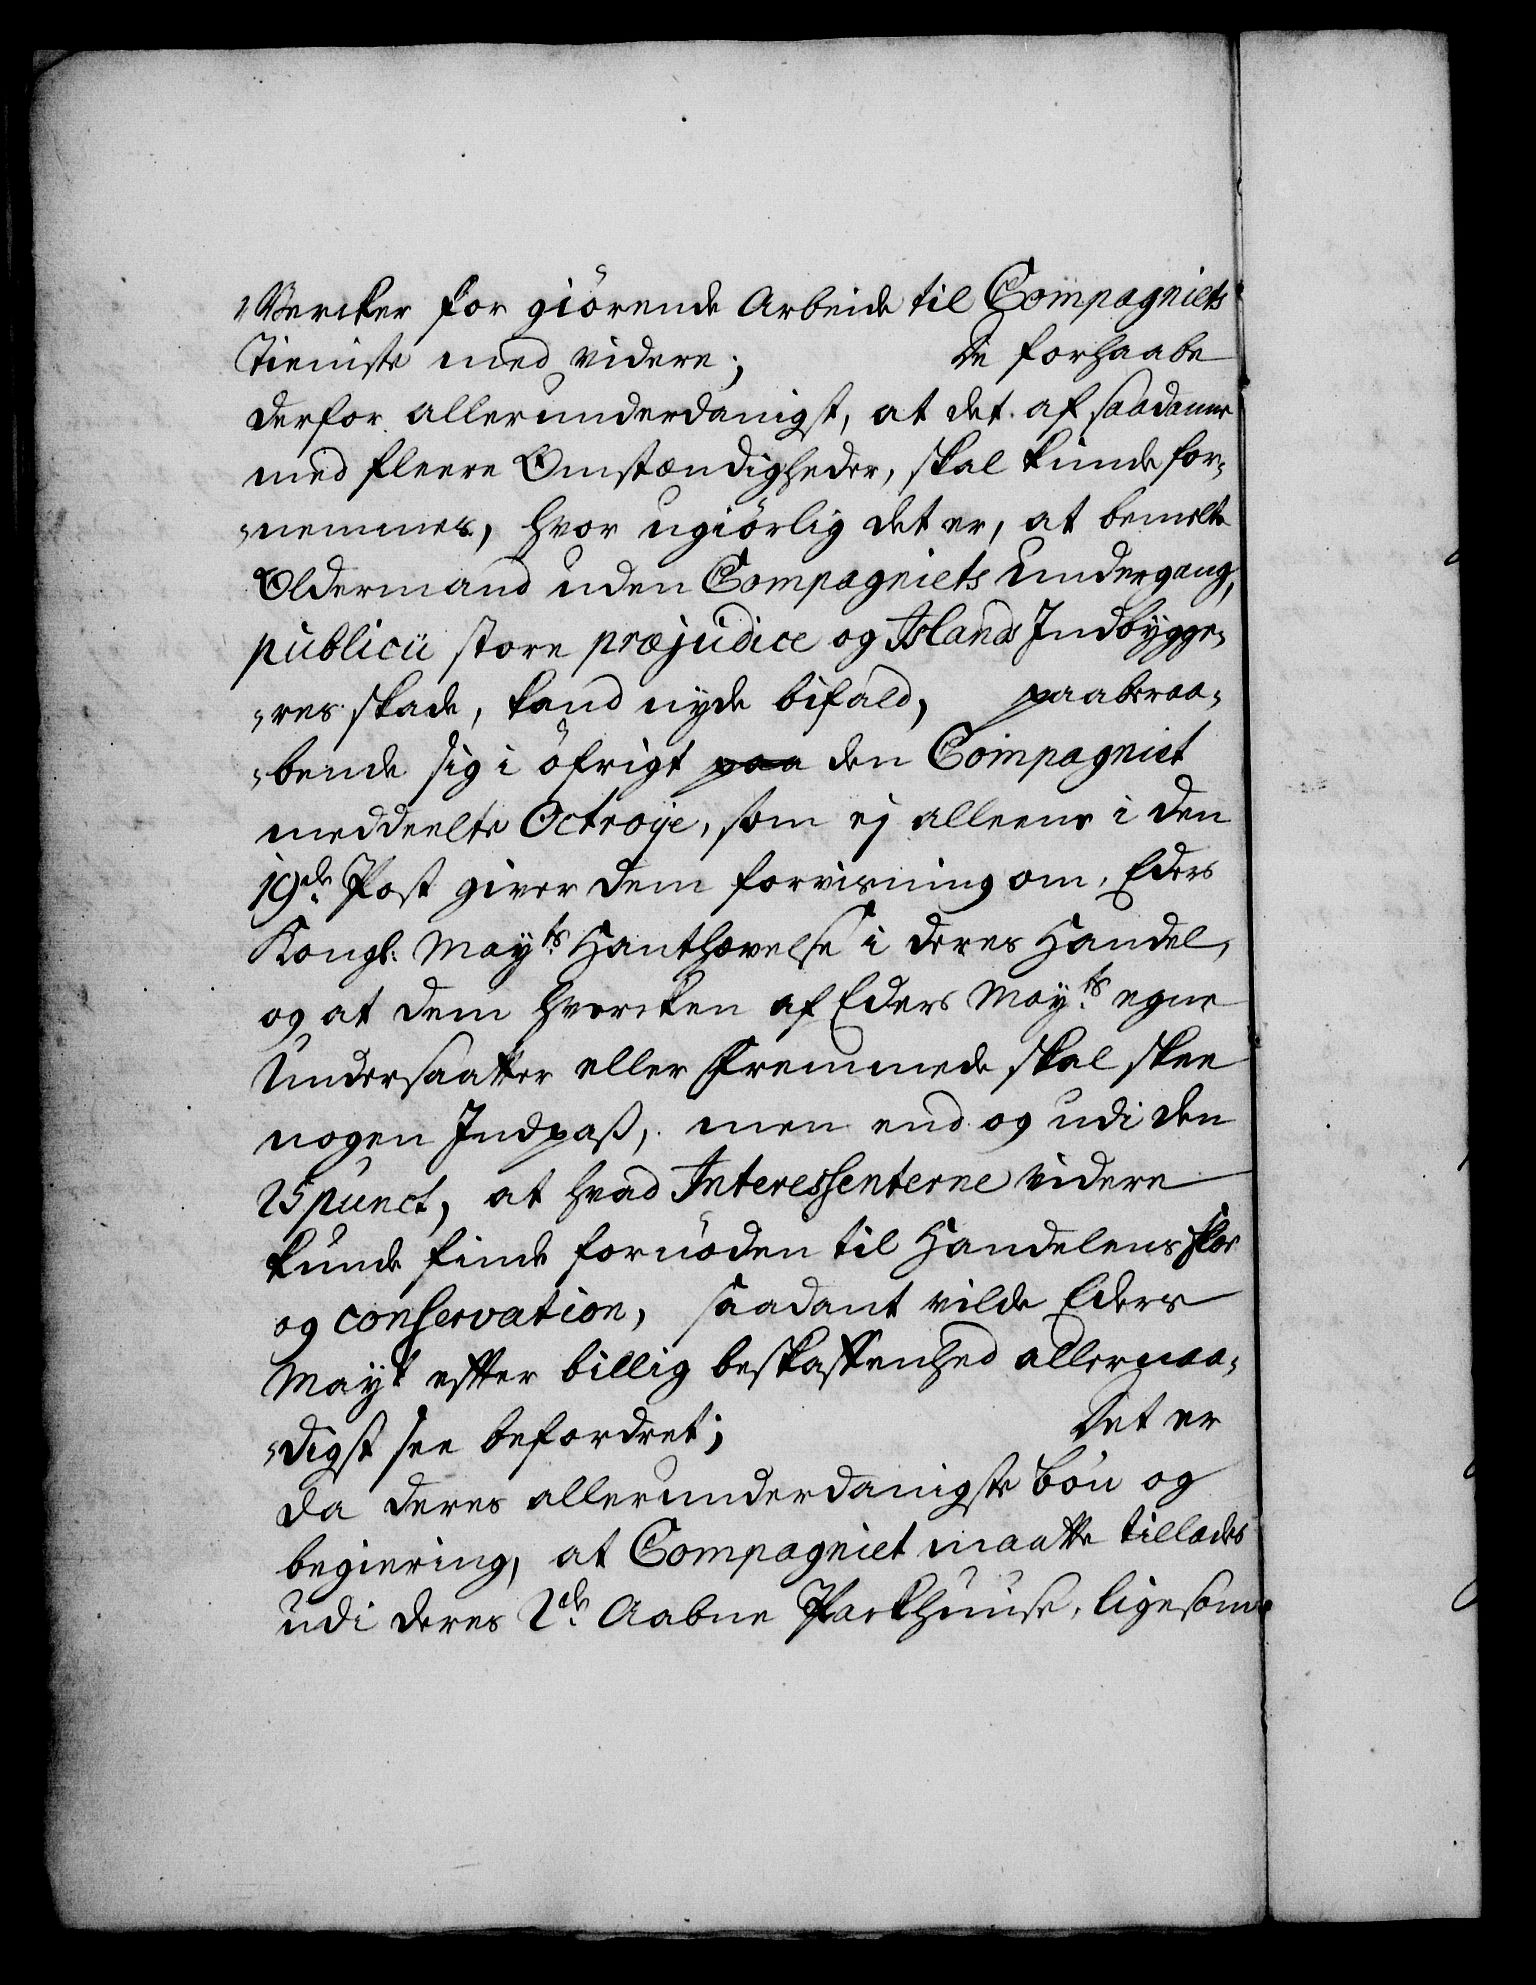 „Wercker for giörende Arbeide til Compagniets
Tieniste med videre; De forhaabe
derfor allerunderdanigst, at det af saadanne
med fleere Omstændigheder, skal kunde for„
„nemmes, hvor ugiörlig det er, at bemelte
Oldermand uden Compagniets Undergang,
publici store præjudice og Islands Indbygge„
„res skade, kand nyde bifald, paaberaa„
„bende sig i öfrigt paa den Compagniet
meddeelte Octroye, som ej alleene i den
19de Post giver dem forvisning om, Eders
Kongl: Mayts Hanthævelse i deres Handel,
og at dem hvercken af Eders Mayts egne
Undersaatter eller Fremmede skal skee
nogen Indpass, men end og udi den
25 punct, at hvad Interessenterne videre
kunde finde fornöden til Handelens flor
og conservation, saadant vilde Eders
Mayt efter billig beskaffenhed allernaa„
„digst see befordret; Det er
da deres allerunderdanigste bön og
begiering, at Compagniet maatte tillades
udi deres 2de Aabne Pakhuuse, ligesom